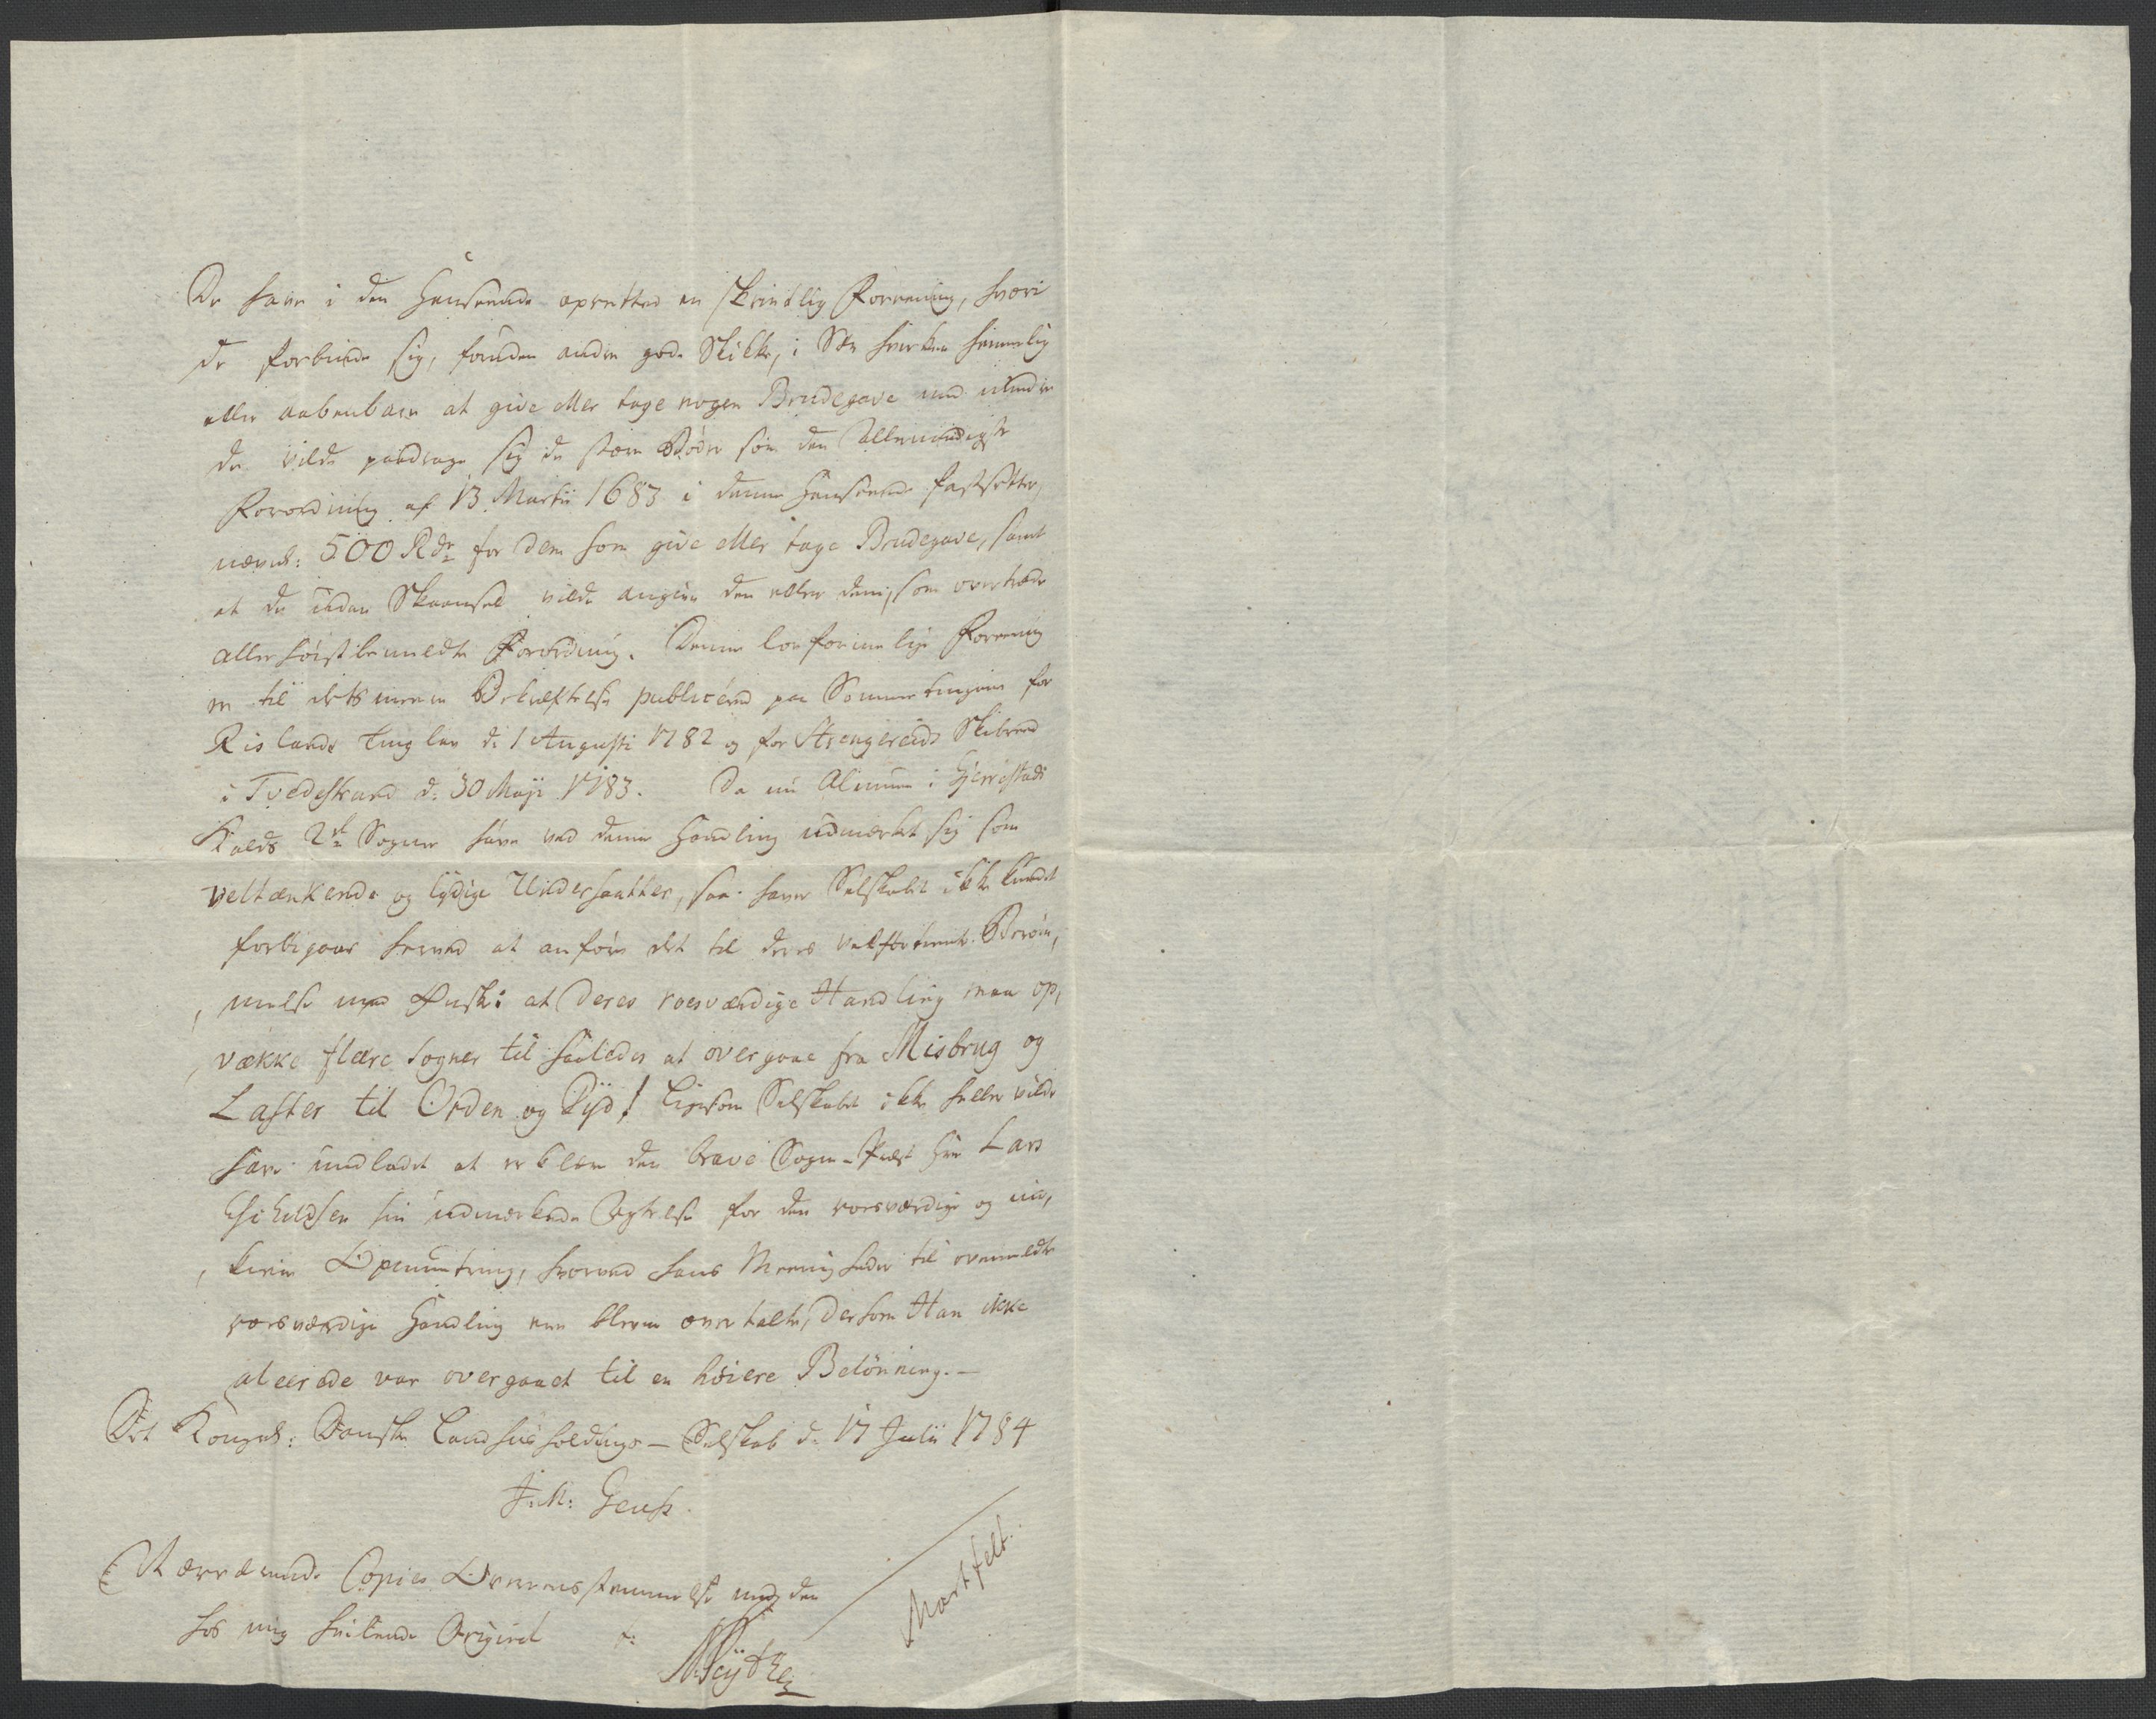 De have i den Henseende oprettet en skrivtlig Foreening, hvori
de forbinde sig, foruden andre gode Skikke, i Sær hverken hemmelig
eller aabenbare at give eller tage nogen Brudegave med mindre
de vilde paadrage sig de store Bøder som den Allernaadigste
Forordning af 13 Martii 1683 i denne Henseende fastsetter,
nævnl: 500 Rdr for dem som give eller tage Brudegave, samt
at de uden Skaansel vilde angive den eller dem, som overtræde
allerhøistbemeldte Forordning. Denne lovformelige Foreening
er til dets meere Bekræftelse publicered paa Sommertinget for
Rislands Tinglav d: 1 Augusti 1782 og for Strengereids Skibred
i Tvedestrand d: 30 Maji 1783. Da nu Almuen i Gjerrestads
Kalds 2de Sogner have ved denne Handling udmerket sig som
veltænkende og lydige Undersaatter, saa haver Selskabet ikke kundet
forbigaae herved at anføre det til deres velfortiente Berøm,
, melse med Ønske: at Deres roesværdige Handling maa op,
, vække fleere Sogner til saaledes at overgaae fra Misbrug og
Laster til Orden og Dyd! ligesom Selskabet ikke heller vilde
have undladt at erklære den brave Sogne-Præst Her Lars
sin udmerkede Agtelse for den roesværdige og vir,
, kende Opmuntring, hvorved hans Meenigheder til ovenmeldte
roesværdige Handling ere blevne overtalte, dersom Han ikke
aleerede var overgaaet til en høiere Belønning.-
Det Kongel: Danske Landhuusholdnings-Selskab d: 17 Julii 1784
J: M: Geuss.
Martfelt.
Nærværende Copies Overeensstemmelse med den
hos mig hvilende Original